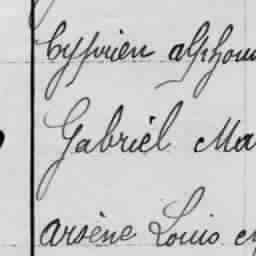 Cyprien alphon
Gabriel Ma
Arsène Louis